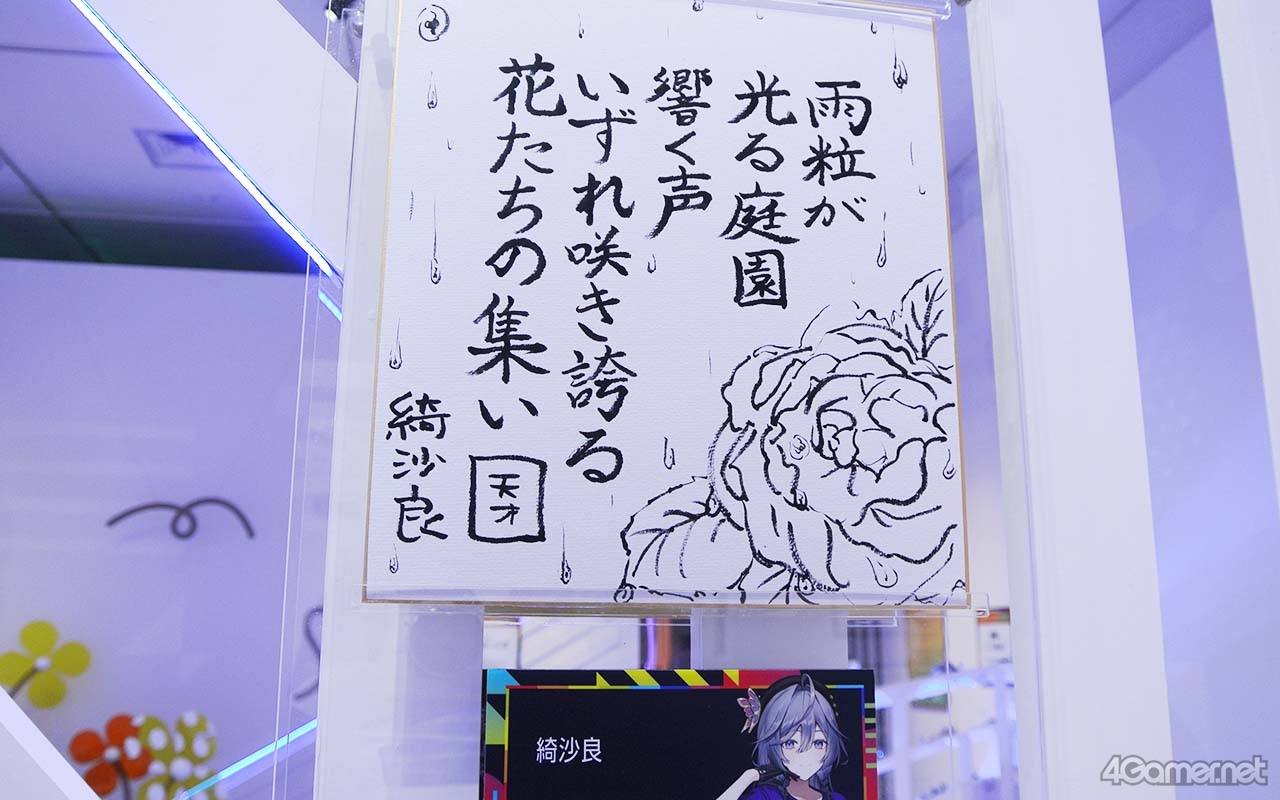 雨粒が
光る庭園
響く声
いずれ咲き誇る
花たちの集い
天才
綺沙良
綺沙良
4Gamer.net